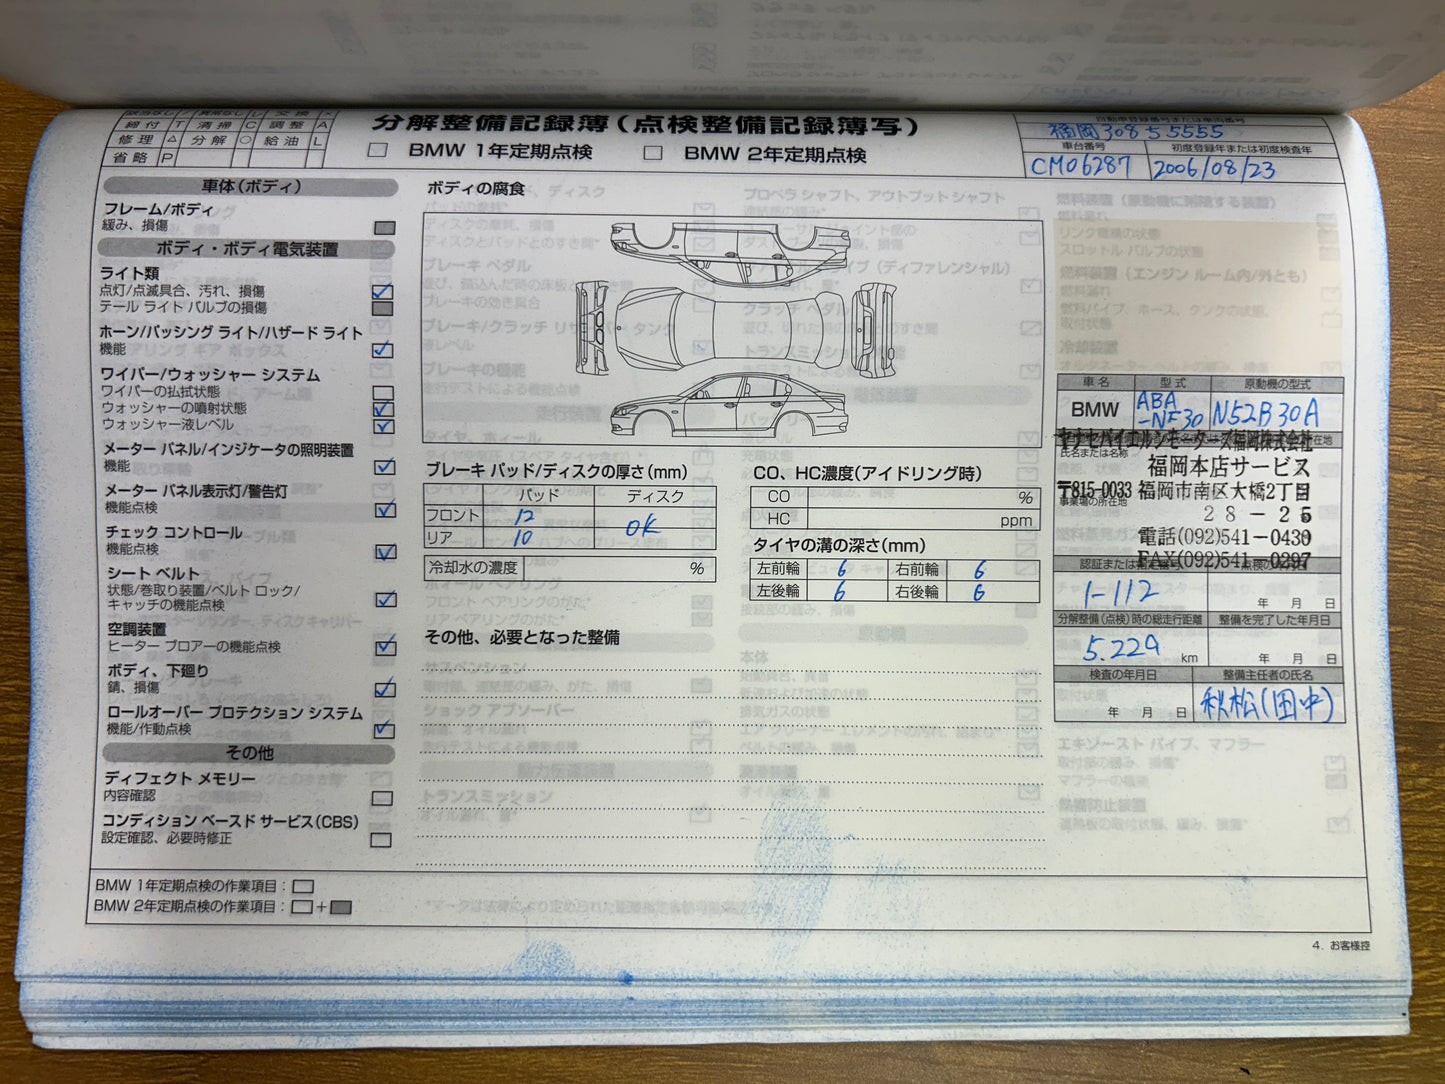 締付 T 清掃 C 調整 A
修理 △ 分解 ○ 給油 L
省略 P
分解整備記録簿(点検整備記録簿写)
BMW 1年定期点検 BMW 2年定期点検
自動車登録番号または車両番号
福岡308 5 5555
車台番号 初度登録年または初度検査年
CM06287 2006/08/23
車体(ボディ)
フレーム/ボディ
緩み、損傷
ボディ・ボディ電気装置
ライト類
点灯/点滅具合、汚れ、損傷
テール ライト バルブの損傷
ホーン/パッシング ライト/ハザード ライト
機能
ワイパー/ウォッシャー システム
ワイパーの払拭状態
ウォッシャーの噴射状態
ウォッシャー液レベル
メーター パネル/インジケータの照明装置
機能
メーター パネル表示灯/警告灯
機能点検
チェック コントロール
機能点検
シート ベルト
状態/巻取り装置/ベルト ロック/
キャッチの機能点検
空調装置
ヒーター ブロアーの機能点検
ボディ、下廻り
錆、損傷
ロールオーバー プロテクション システム
機能/作動点検
その他
ディフェクト メモリー
内容確認
コンディション ベースド サービス(CBS)
設定確認、必要時修正
BMW 1年定期点検の作業項目:
BMW 2年定期点検の作業項目: +
ボディの腐食
ブレーキ パッド/ディスクの厚さ(mm)
パッド ディスク
フロント 12 OK
リア 10
冷却水の濃度 %
その他、必要となった整備
CO、HC濃度(アイドリング時)
CO %
HC ppm
タイヤの溝の深さ(mm)
左前輪 6 右前輪 6
左後輪 6 右後輪 6
車名 型式 原動機の型式
BMW ABA-NF30 N52B30A
ヤナセバイエルンモーターズ福岡株式会社
氏名または名称
福岡本店サービス
〒815-0033 福岡市南区大橋2丁目
事業場の所在地
28-25
電話(092)541-0430
FAX(092)541-0297
1-112
年 月 日
分解整備(点検)時の総走行距離 整備を完了した年月日
5.229 km 年 月 日
検査の年月日 整備主任者の氏名
年 月 日 秋松(田中)
4. お客様控